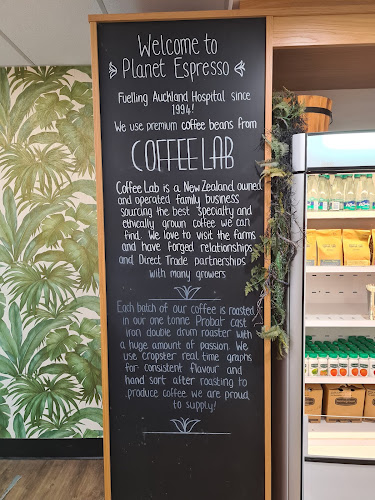 Welcome to
Planet Espresso
Fuelling Auckland Hospital since
1994!
We use premium coffee beans from
COFFEE LAB
Coffee Lab is a New Zealand owned
and operated family business
sourcing the best specialty and
ethically grown coffee we can
find. We love to visit the farms
and have forged relationships
and Direct Trade partnerships
with many growers
Each batch of our coffee is roasted
in our one tonne Probat cast
iron double drum roaster with
a huge amount of passion. We
use cropster real time graphs
for consistent flavour and
hand sort after roasting to
produce coffee we are proud
to supply!